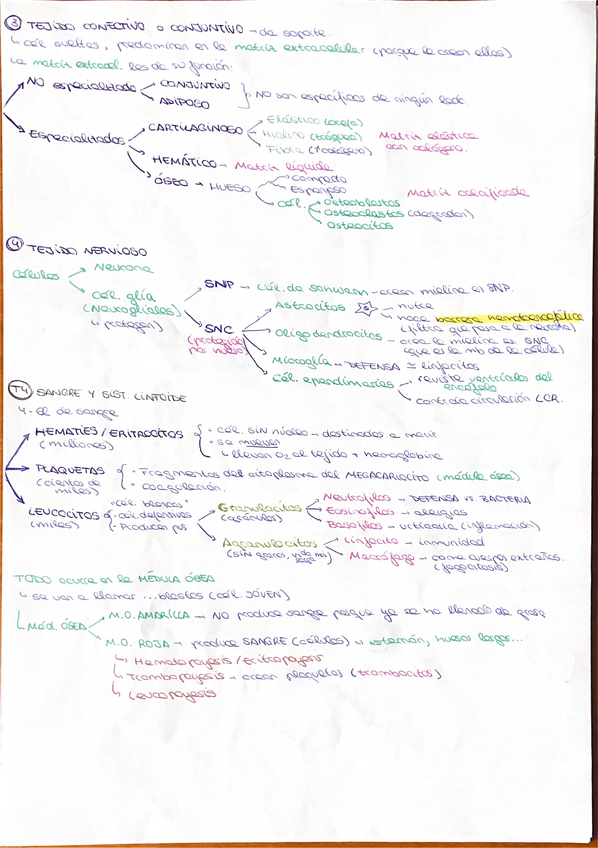 ③ TEJIDO CONECTIVO O CONJUNTIVO → da soporte
↳ cél sueltas, predominan en la matriz extracelular (porque la crean ellas)
La matriz extracel. les da su función:
NO especializado → CONJUNTIVO
→ ADIPOSO } No son específicos de ningún lado.
Especializados → CARTILAGINOSO → Elástico (oreja)
Hialino (tráquea) Matriz elástica
Fibroso (+ colágeno) con colágeno.
→ HEMÁTICO → Matriz líquida
→ ÓSEO → HUESO → Compacto
→ Esponjoso Matriz calcificada
→ Cél. → Osteoblastos
→ Osteoclastos (degradan)
→ Osteocitos
④ TEJIDO NERVIOSO
Células → Neurona
→ Cél. glía → SNP → Cél. de schwann → crean mielina en SNP.
(Neurogliales) → SNC → Astrocitos → nutre
↳ protegen) (protegido por hueso) → hace barrera hematoencefálica
(filtra que pasa a la neurona)
→ Oligodendrocitos → crea la mielina en SNC
(que es la mb de la célula)
→ Microglía → DEFENSA ≃ linfocitos
→ Cél. ependimarias → reviste ventrículos del encéfalo
→ controla circulación LCR.
T4 SANGRE Y SIST. LINFOIDE
4-5l de sangre
HEMATÍES/ERITROCITOS { · cél. SIN núcleo → destinados a morir
(millones) · se mueven
↳ llevan O₂ al tejido + hemoglobina
PLAQUETAS { · Fragmentos del citoplasma del MEGACARIOCITO (médula ósea)
(cientos de miles) · coagulación.
LEUCOCITOS { "cél. blancas"
(miles) · cél. defensivas
· Producen pus
→ Granulocitos → Neutrófilos → DEFENSA vs. BACTERIA
(gránulos) → Eosinófilos → alergias
→ Basófilos → urticaria (inflamación)
→ Agranulocitos → Linfocito → inmunidad
(sin grano, vida más) → Macrófago → come cuerpos extraños.
(fagocitosis)
TODO ocurre en la MÉDULA ÓSEA
↳ se van a llamar ...blastos (cél. JÓVEN)
MÉD. ÓSEA → M.O. AMARILLA → NO produce sangre porque ya se ha llenado de grasa
→ M.O. ROJA → produce SANGRE (células) → esternón, huesos largos...
↳ Hematopoyesis/Eritropoyesis
↳ Trombopoyesis → crean plaquetas (trombocitos)
↳ Leucopoyesis